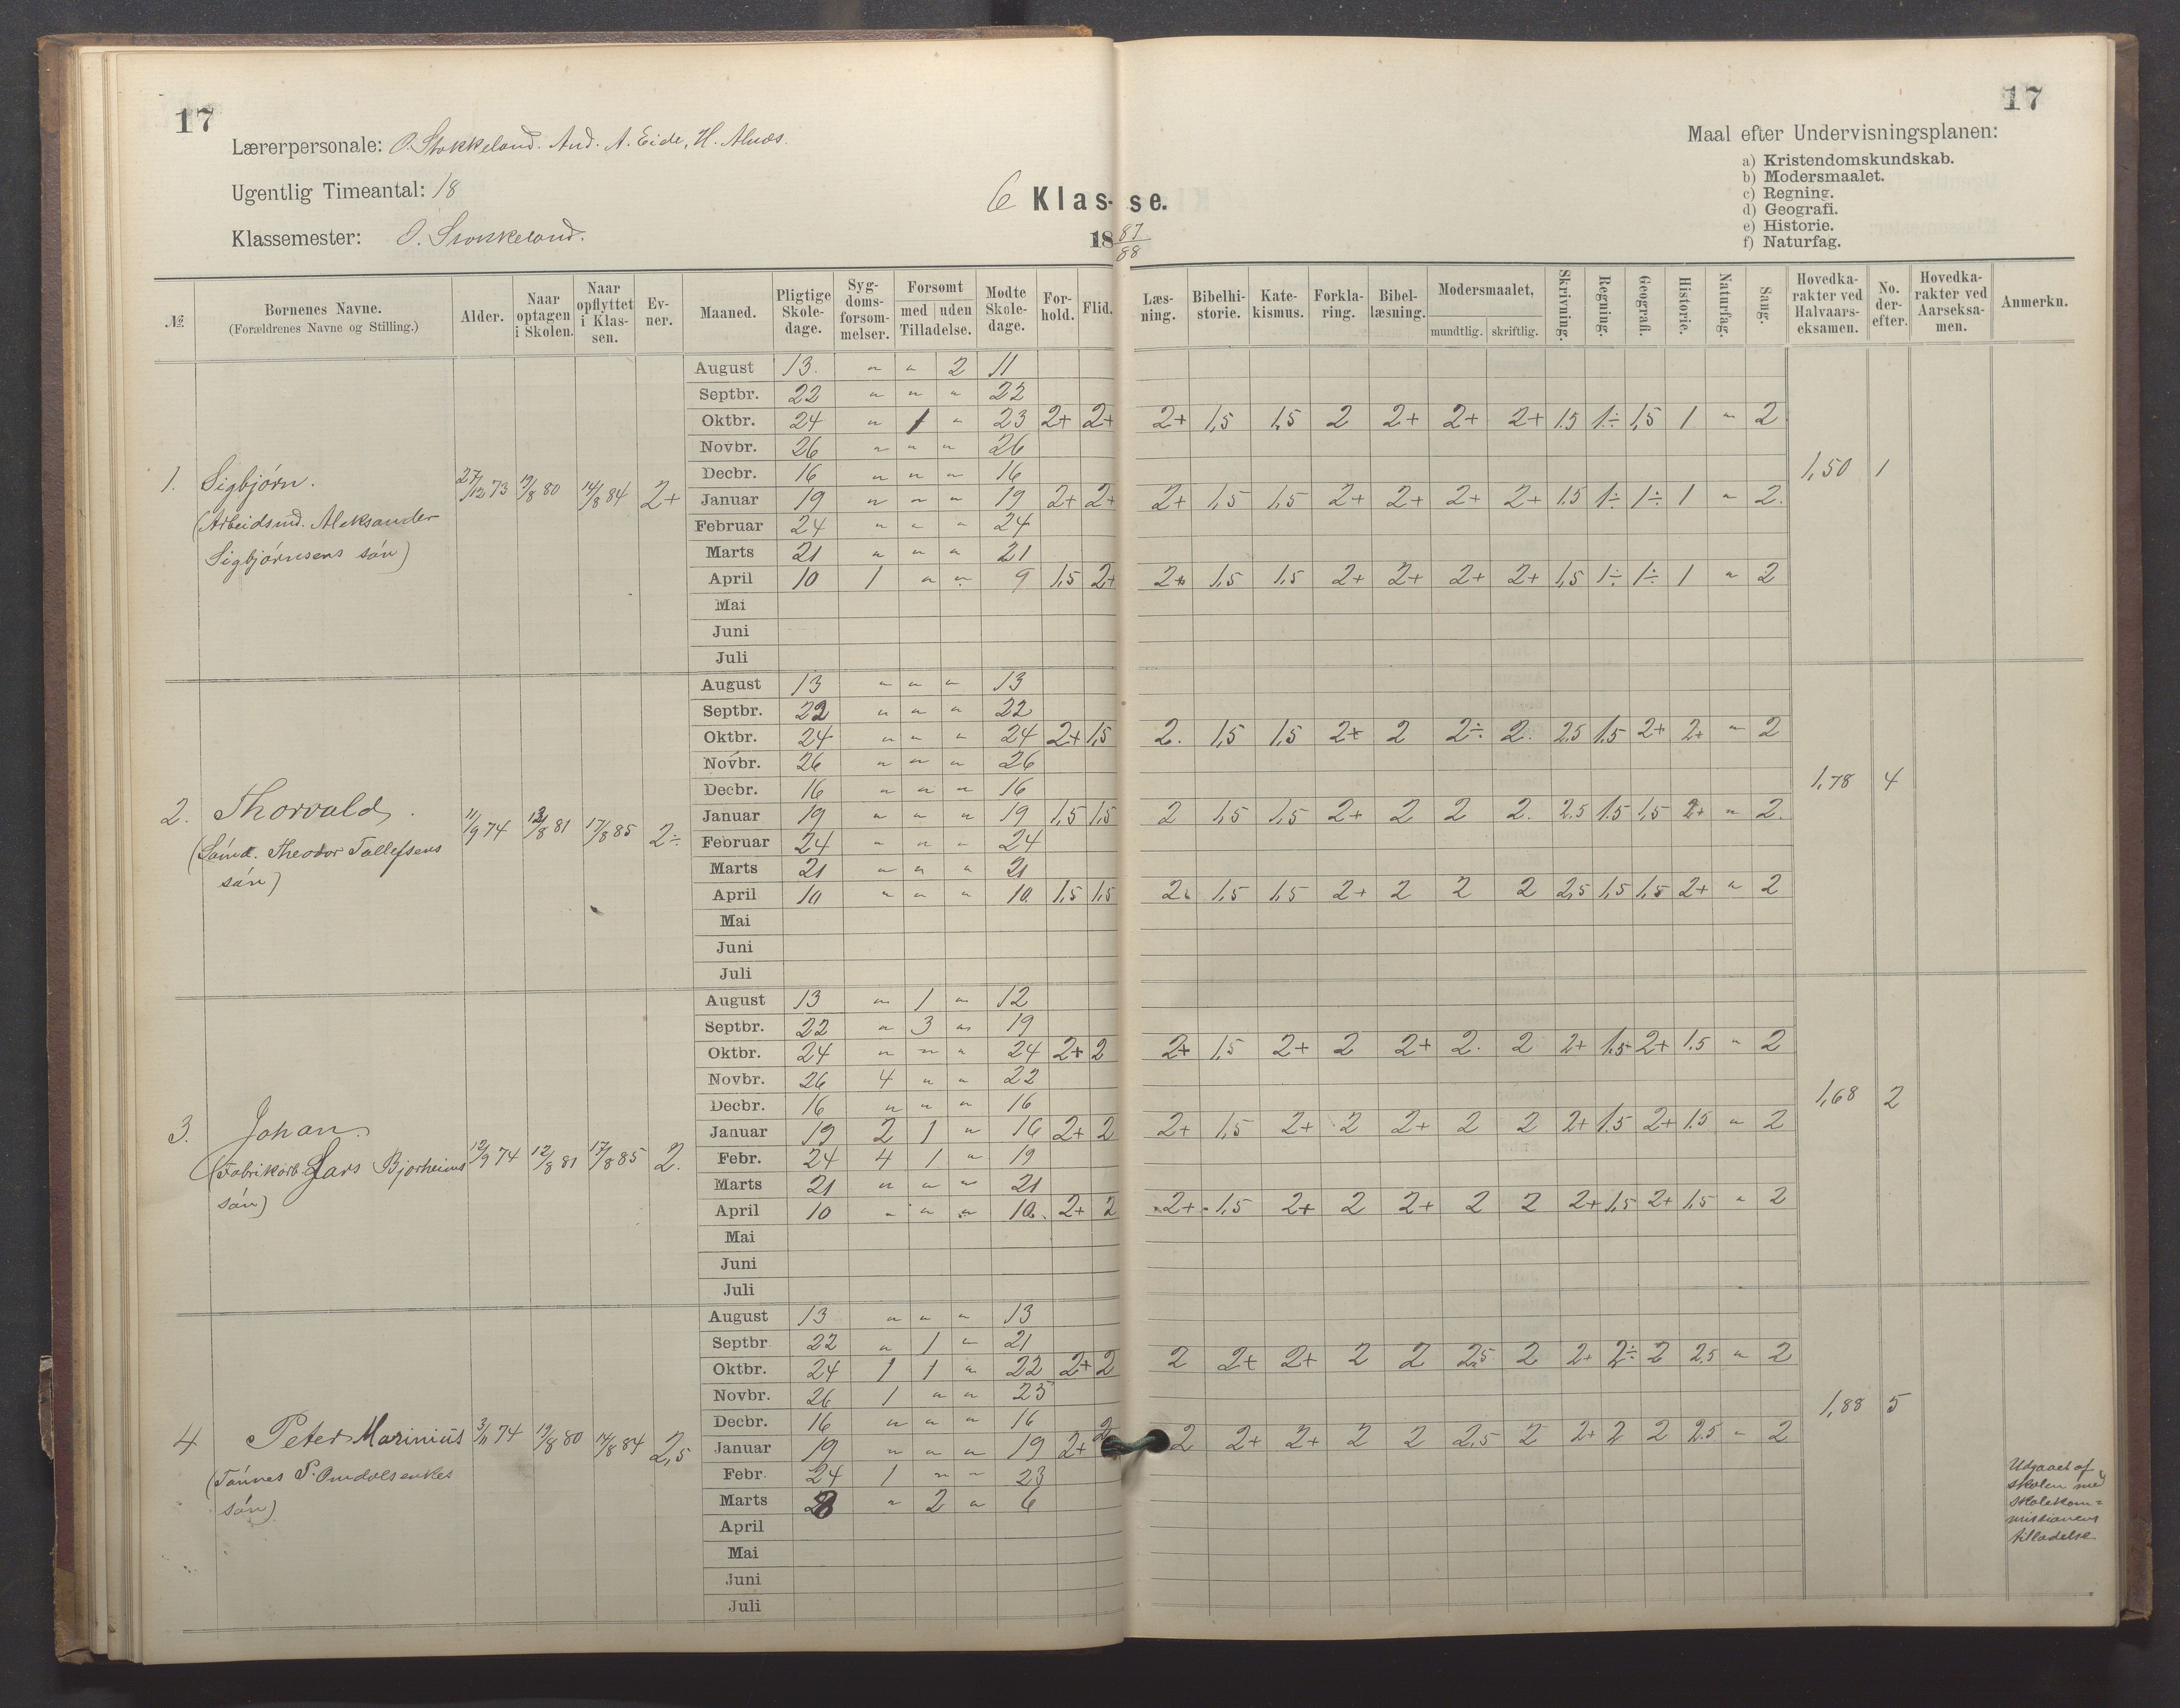 17
17
Lærerpersonale: O. Stokkeland. And. A. Eide, H. Alnæs.
Ugentlig Timeantal: 18
Klassemester: O. Stokkeland.
6 Klas-se.
18 87/88
Maal efter Undervisningsplanen:
a) Kristendomskundskab.
b) Modersmaalet.
c) Regning.
d) Geografi.
e) Historie.
f) Naturfag.
№ Børnenes Navne. (Forældrenes Navne og Stilling.) Alder. Naar optagen i Skolen. Naar opflyttet i Klassen. Evner. Maaned. Pligtige Skoledage. Sygdomsforsømmelser. Forsømt med uden Tilladelse. Mødte Skoledage. Forhold. Flid. Læsning. Bibelhistorie. Katekismus. Forklaring. Bibellæsning. Modersmaalet, mundtlig. skriftlig. Skrivning. Regning. Geografi. Historie. Naturfag. Sang. Hovedkarakter ved Halvaarseksamen. No. derefter. Hovedkarakter ved Aarseksamen. Anmerkn.
1. Sigbjørn. 27/12 73 19/8 80 14/8 84 2+ 1,50 1
(Arbeidsmd. Aleksander
Sigbjørnsens søn)
August 13. " " 2 11
Septbr. 22 " " " 22
Oktbr. 24 " 1 " 23 2+ 2+ 2+ 1,5 1,5 2 2+ 2+ 2+ 1.5 1÷ 1,5 1 " 2
Novbr. 26 " " " 26
Decbr. 16 " " " 16
Januar 19 " " " 19 2+ 2+ 2+ 1,5 1,5 2+ 2+ 2+ 2+ 1.5 1÷ 1÷ 1 " 2.
Februar 24 " " " 24
Marts 21 " " " 21
April 10 1 " " 9 1,5 2+ 2+ 1,5 1,5 2+ 2+ 2+ 2+ 1,5 1÷ 1÷ 1 " 2
Mai
Juni
Juli
2. Thorvald. 11/9 74 12/8 81 17/8 85 2÷ 1,78 4
(Sømd. Theodor Tallefsens
søn)
August 13 " " " 13
Septbr. 22 " " " 22
Oktbr. 24 " " " 24 2+ 1,5 2. 1,5 1,5 2+ 2 2÷ 2. 2.5 1.5 2+ 2+ " 2
Novbr. 26 " " " 26
Decbr. 16 " " " 16
Januar 19 " " " 19 1,5 1,5 2 1,5 1,5 2+ 2 2 2. 2.5 1.5 1,5 2+ " 2.
Februar 24 " " " 24
Marts 21 " " " 21
April 10 " " " 10. 1,5 1,5 2 1,5 1,5 2+ 2 2 2 2,5 1,5 1,5 2+ " 2
Mai
Juni
Juli
3. Johan. 12/9 74 12/8 81 17/8 85 2. 1,68 2
(Fabrikarb. Lars Bjorheims
søn)
August 13 " 1 " 12
Septbr. 22 " 3 " 19
Oktbr. 24 " " " 24 2+ 2 2+ 1,5 2+ 2 2+ 2. 2 2+ 1.5 2+ 1.5 " 2
Novbr. 26 4 " " 22
Decbr. 16 " " " 16
Januar 19 2 1 " 16 2+ 2 2+ 1,5 2+ 2 2+ 2 2 2+ 1.5 2+ 1.5 " 2
Febr. 24 4 1 " 19
Marts 21 " " " 21
April 10 " " " 10. 2+ 2 2+ 1.5 2+ 2 2+ 2 2 2+ 1,5 2+ 1,5 " 2
Mai
Juni
Juli
4 Peter Marinius 3/11 74 19/8 80 14/8 84 2,5 1,88 5
(Tønnes P. Omdals enkes
søn)
August 13 " " " 13
Septbr 22 " 1 " 21
Oktbr. 24 1 1 " 22 2+ 2 2 2+ 2+ 2 2 2,5 2 2+ 2÷ 2 2.5 " 2
Novbr. 26 1 " " 25
Decbr. 16 " " " 16
Januar 19 " " " 19 2+ 2 2 2+ 2+ 2 2 2,5 2 2+ 2 2 2.5 " 2
Febr. 24 1 " " 23
Marts 8 " 2 " 6
April
Mai
Juni
Juli
Udgaaet af
skolen med
skolekom=
missionens
tilladelse